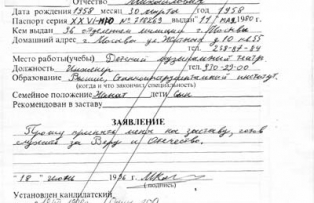 Отчество Михайлович
Дата рождения 1958 месяц 30 марта год 1958
Паспорт серия XXVI-МЮ № 718269 выдан 11/ мая 1980 г.
Кем выдан 36 отделением милиции г. Москвы
Домашний адрес г. Москва ул.
тел. 238-84-84
Место работы(учебы) Детский музыкальный театр
Должность, Инженер тел. 930-52-00
Образование Высшее, институт.
(когда и что закончил, специальность)
Семейное положение Женат дети Сын
Рекомендован в заставу
ЗАЯВЛЕНИЕ
Прошу принять меня на заставу, готов
служить за Веру и Отечество.
"18" июня 1996 г.
(подпись)
Установлен кандидатский